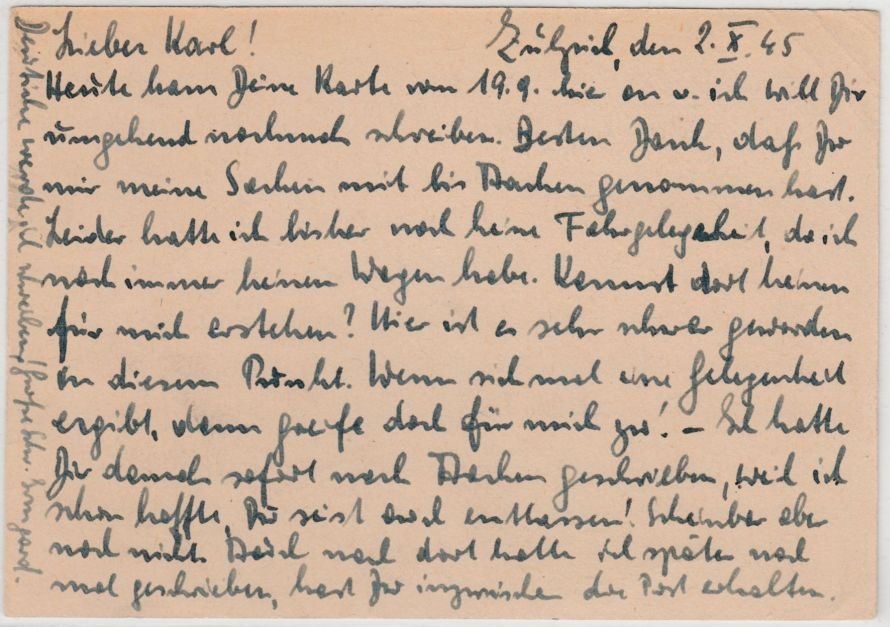 Lieber Karl! Zülpich, den 2. X. 45
Heute kam Deine Karte vom 19.9. hier an u. ich will Dir
umgehend nochmals schreiben. Besten Dank, daß Du
mir meine Sachen mit bis Aachen genommen hast.
Leider hatte ich bisher noch keine Fahrgelegenheit, da ich
noch immer keinen Wagen habe. Kannst dort keinen
für mich erstehen? Hier ist es sehr schwer geworden
in diesem Punkt. Wenn sich mal eine Gelegenheit
ergibt, dann greife doch für mich zu! – Ich hatte
Dir damals sofort nach Aachen geschrieben, weil ich
schon hoffte, Du seist auch entlassen! Scheinbar aber
noch nicht. Auch nach dort hatte ich später noch
mal geschrieben, hast Du inzwischen die Post erhalten.
schreiben! Grüße